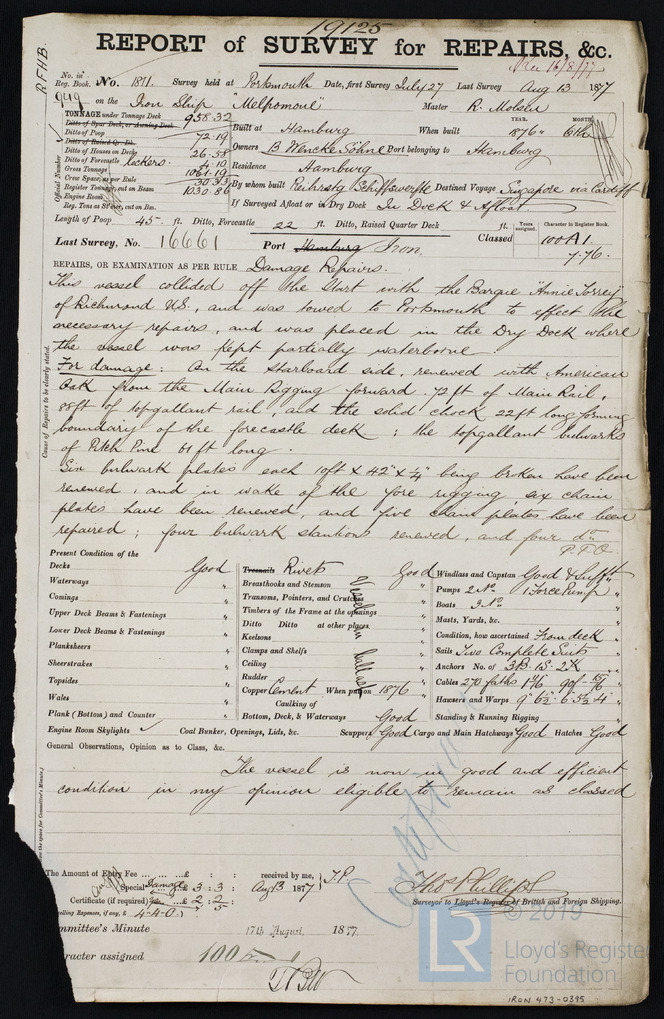 19125
REPORT of SURVEY for REPAIRS, &c.
Rec 16/8/77
R.F.H.B.
No. in Reg. Book. No. 1871. Survey held at Portsmouth Date, first Survey July 27 Last Survey Aug 13 1877
949 on the Iron Ship "Melpomone" Master R. Molsen
TONNAGE under Tonnage Deck 958.32
Ditto of Spar Deck, or Awning Deck
Ditto of Poop 72.19
Ditto of Raised Qr. Dk.
Ditto of Houses on Deck 26.58
Ditto of Forecastle lockers. 4.10
Gross Tonnage 1061.19
Crew Space, as per Rule 30.33
Register Tonnage, cut on Beam 1030.86
Engine Room
Reg. Tons as Steamer, cut on Bm.
Official Number
YEAR. MONTH.
Built at Hamburg When built 1876 6th
Owners B Wencke Söhne Port belonging to Hamburg
Residence Hamburg
By whom built Reiherstg Schiffswerfte Destined Voyage Singapore via Cardiff
If Surveyed Afloat or in Dry Dock In Dock & Afloat
Length of Poop 45 ft. Ditto, Forecastle 22 ft. Ditto, Raised Quarter Deck ft.
Years assigned. Character in Register Book.
Last Survey, No. 16661 Port Hamburg Iron. Classed 100A1.
7.76.
REPAIRS, OR EXAMINATION AS PER RULE Damage Repairs.
This vessel collided off the Start with the Barque "Annie Torrey"
of Richmond U.S., and was towed to Portsmouth to effect the
necessary repairs, and was placed in the Dry Dock where
the vessel was kept partially waterborne
For damage: On the starboard side, renewed with American
Oak from the Main Rigging forward 72 ft of Main Rail,
88ft of topgallant rail, and the solid chock 22ft long forming
boundary of the forecastle deck; the topgallant bulwarks
of Pitch Pine 61 ft long.
Six bulwark plates each 10ft x 42" x ¼" being broken have been
renewed, and in wake of the fore rigging, six chain
plates have been renewed, and five chain plates have been
repaired; four bulwark stantions renewed, and four do
P.T.O.
Cause of Repairs to be clearly stated.
Present Condition of the
Decks Good
Waterways "
Comings "
Upper Deck Beams & Fastenings "
Lower Deck Beams & Fastenings "
Planksheers "
Sheerstrakes "
Topsides "
Wales "
Plank (Bottom) and Counter "
Engine Room Skylights
Treenails Rivets Good
Breasthooks and Stemson "
Transoms, Pointers, and Crutches "
Timbers of the Frame at the openings "
Ditto Ditto at other places "
Keelsons "
Clamps and Shelfs "
Ceiling "
Rudder "
Copper Cement When put on 1876
Caulking of
Bottom, Deck, & Waterways Good
Vessel in ballast
Windlass and Capstan Good & Suffnt
Pumps 2 No. 1 Force Pump "
Boats 3 No. "
Masts, Yards, &c. "
Condition, how ascertained From deck "
Sails Two Complete Suits "
Anchors No. of 3B. 1S. 2K "
Cables 270 faths "
Hawsers and Warps "
Standing & Running Rigging "
Coal Bunker, Openings, Lids, &c. Scuppers Good Cargo and Main Hatchways Good Hatches Good
General Observations, Opinion as to Class, &c.
The vessel is now in good and efficient
condition in my opinion eligible to remain as classed
The Amount of Entry Fee ... £ : : received by me,
Special Damage £ 3 : 3 : Aug 13 1877 T.P.
Certificate (if required) £ 2 : 2 :
elling Expenses, if any, £ 4-4-0
Thos Phillips
Surveyor to Lloyd's Register of British and Foreign Shipping.
Committee's Minute 17th August, 1877.
Character assigned 100
© 2019
LR
Lloyd's Register
Foundation
IRON 473-0395